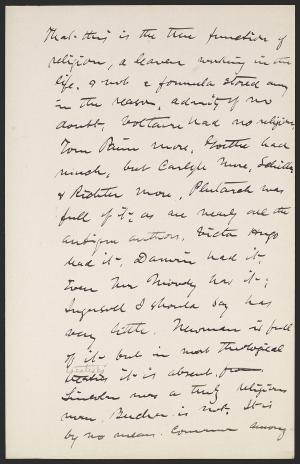 That this is the true function of
religion, a leaven working in the
life, & not a formula stored away
in the reason, admits of no
doubt, Voltaire had no religion,
Tom Pain none, Goethe had
much, but Carlyle more, Schiller
& Richter more, Plutarch was
full of it, as are nearly all the
antique authors. Victor Hugo
had it, Darwin had it,
Even Mr Moody has it;
Ingersoll I should say has
very little. Newman is full
of it but in most theological
treatises it is absent from
Lincoln was a truly religious
man. Beecher is not. It is
by no means common among